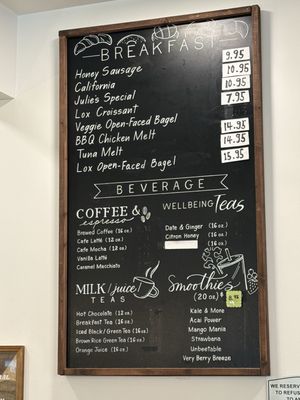 BREAKFAST
Honey Sausage 9.95
California 10.95
Julie's Special 10.95
Lox Croissant 7.95
Veggie Open-Faced Bagel
BBQ Chicken Melt 14.95
Tuna Melt 14.95
Lox Open-Faced Bagel 15.95
BEVERAGE
COFFEE &
espresso
Brewed Coffee (16 oz.)
Cafe Latte (12 oz.)
Cafe Mocha (12 oz.)
Vanilla Latte
Caramel Macchiato
WELLBEING Teas
Date & Ginger (16 oz.)
Citron Honey (16 oz.)
(16 oz.)
MILK/juice/
TEAS
Hot Chocolate (12 oz.)
Breakfast Tea (16 oz.)
Iced Black/Green Tea (16 oz.)
Brown Rice Green Tea (16 oz.)
Orange Juice (16 oz.)
Smoothies
(20 oz.)
Kale & More
Acai Power
Mango Mania
Strawbana
Unbeetable
Very Berry Breeze
WE RESERVE
TO REFUS
TO AN